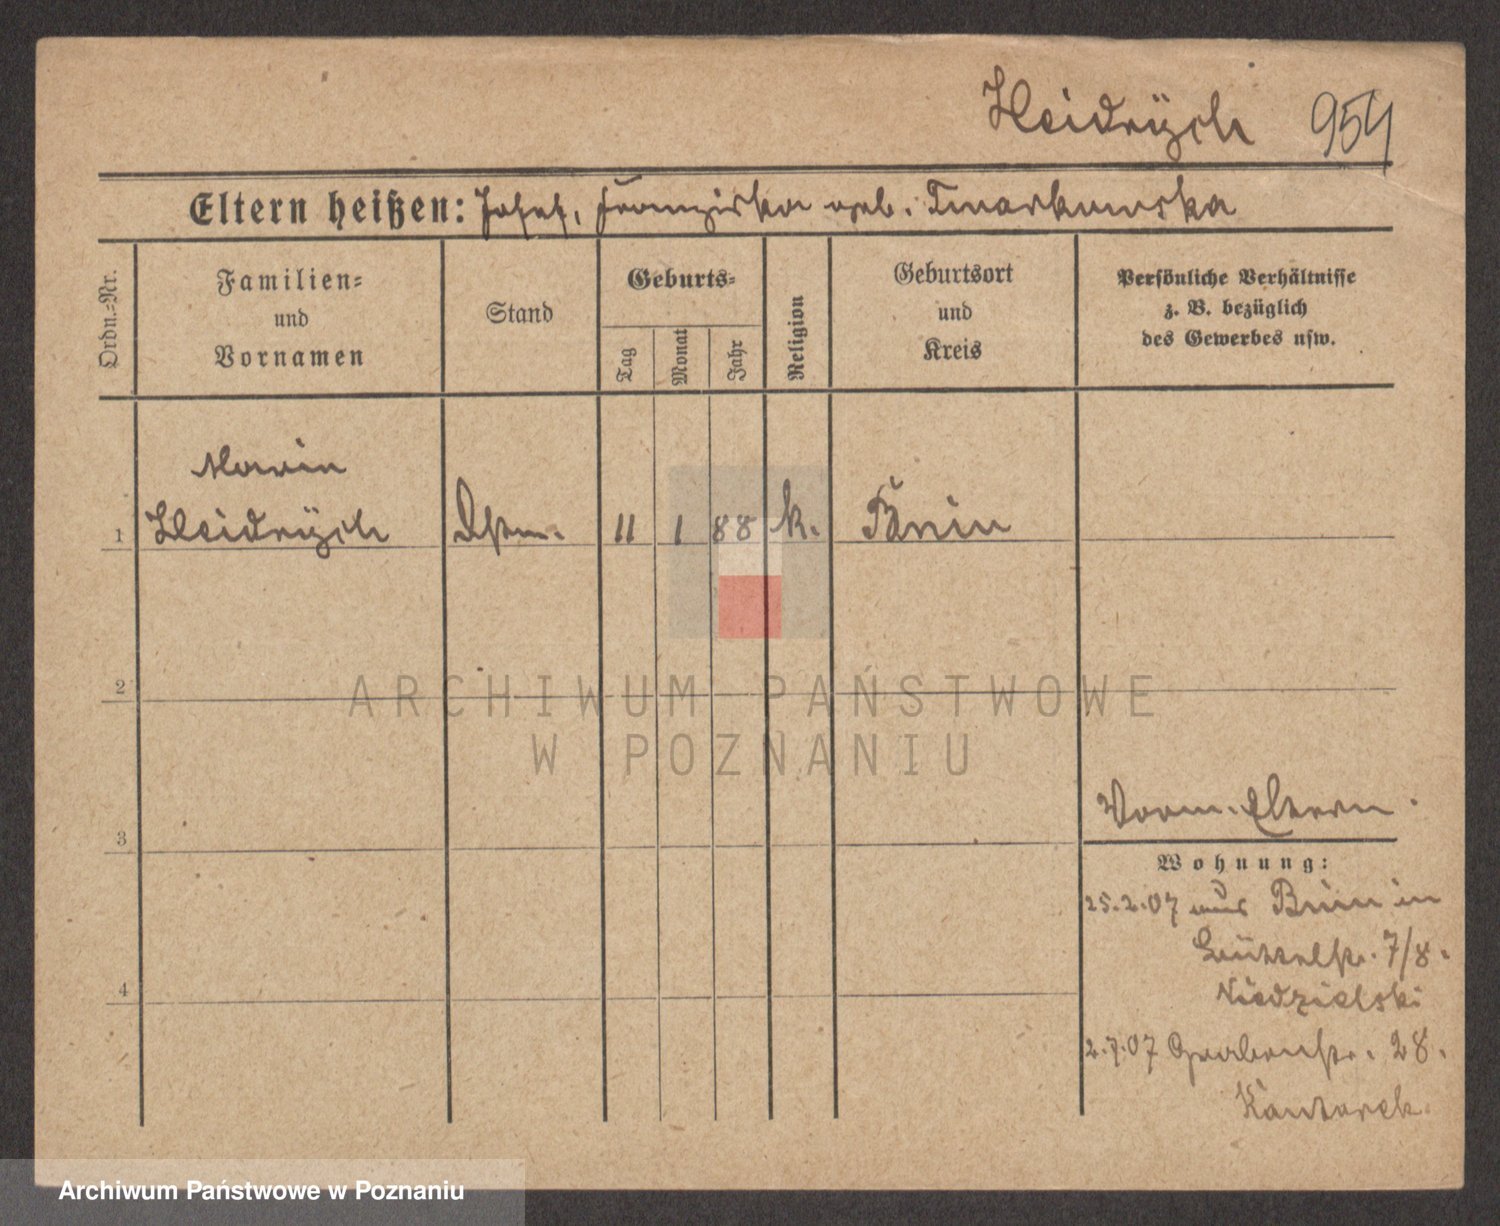 Heidrÿch 954
Eltern heißen: Josef, Franziska geb. Twarkowska
Ordn.-Nr.
Familien-
und
Vornamen
Stand
Geburts-
Tag
Monat
Jahr
Religion
Geburtsort
und
Kreis
Persönliche Verhältnisse
z. B. bezüglich
des Gewerbes usw.
Maria
1 Heidrÿch 11 1 88 k. Bnin
2
3
4
Vorm. Eltern
Wohnung:
25.2.07 aus Bnin in
7/8.
Niedzielski
2.7.07 Grabenstr. 28.
Kantorek.
ARCHIWUM PAŃSTWOWE
W POZNANIU
Archiwum Państwowe w Poznaniu